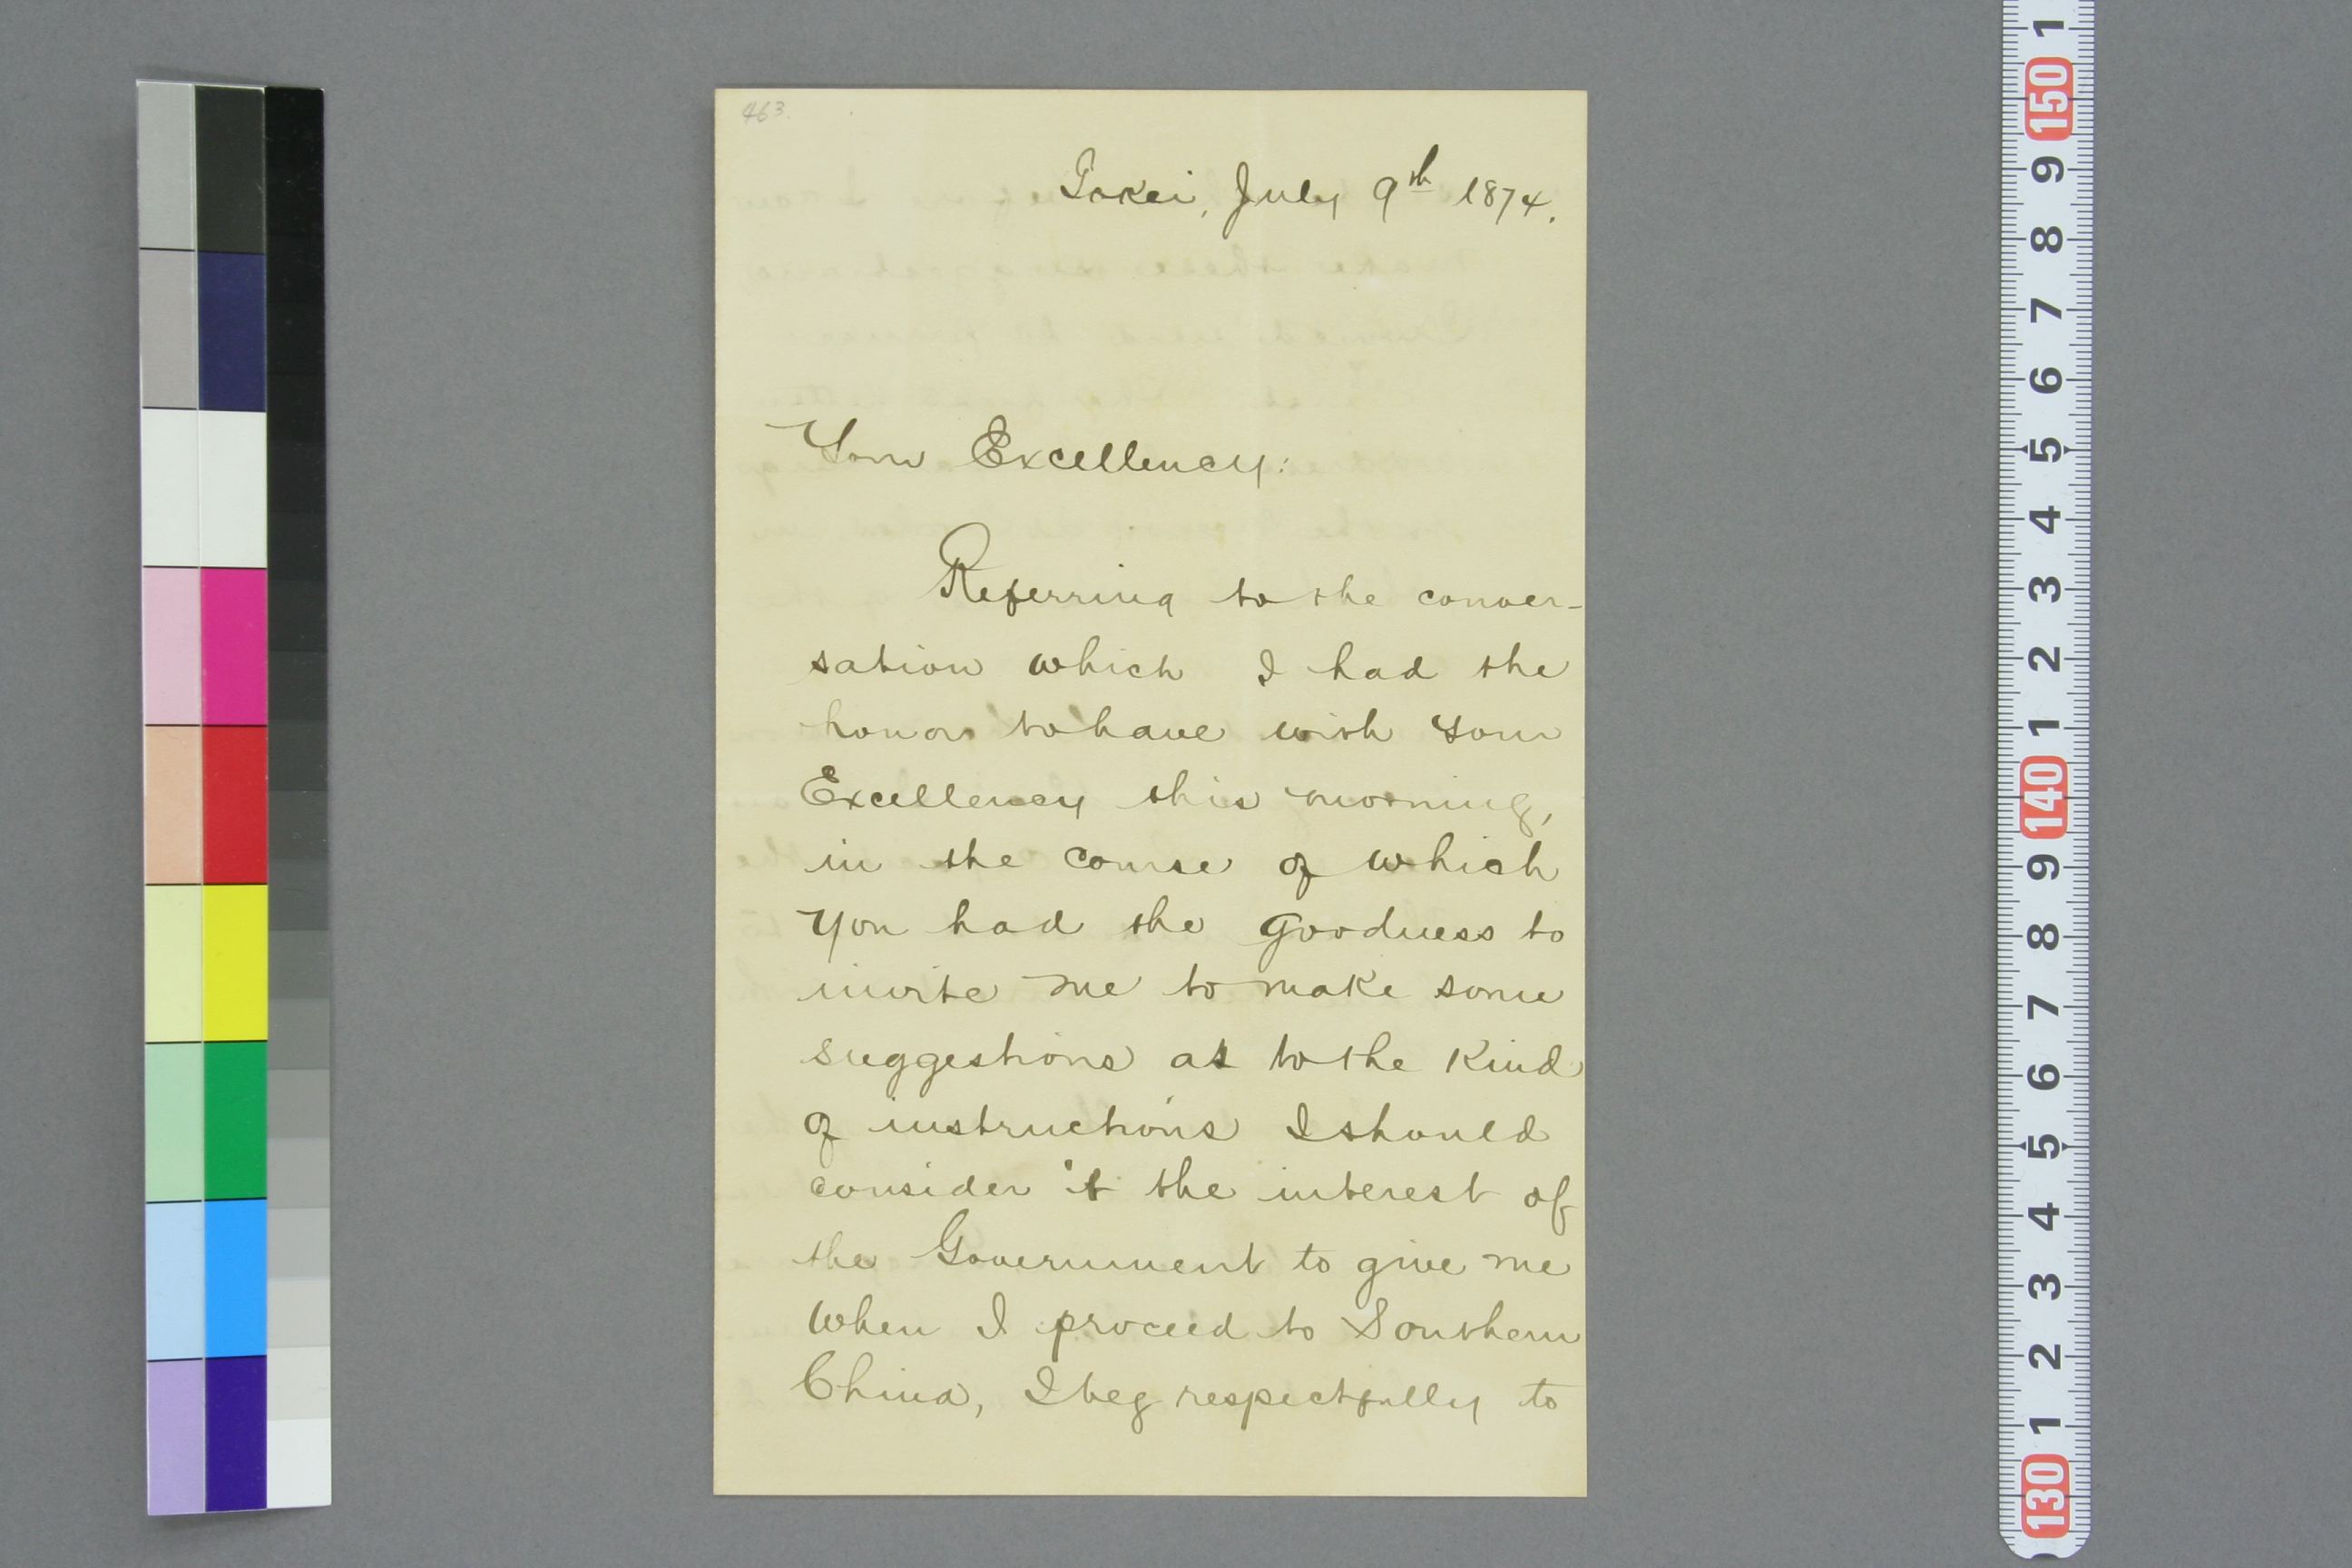 463.
Tokei, July 9th 1874.
Your Excellency:
Referring to the conver-
sation which I had the
honor to have with your
Excellency this morning,
in the course of which
you had the goodness to
invite me to make some
suggestions as to the kind
of instructions I should
consider it the interest of
the Government to give me
when I proceed to Southern
China, I beg respectfully to
1
150
9
8
7
6
5
4
3
2
1
140
9
8
7
6
5
4
3
2
1
130